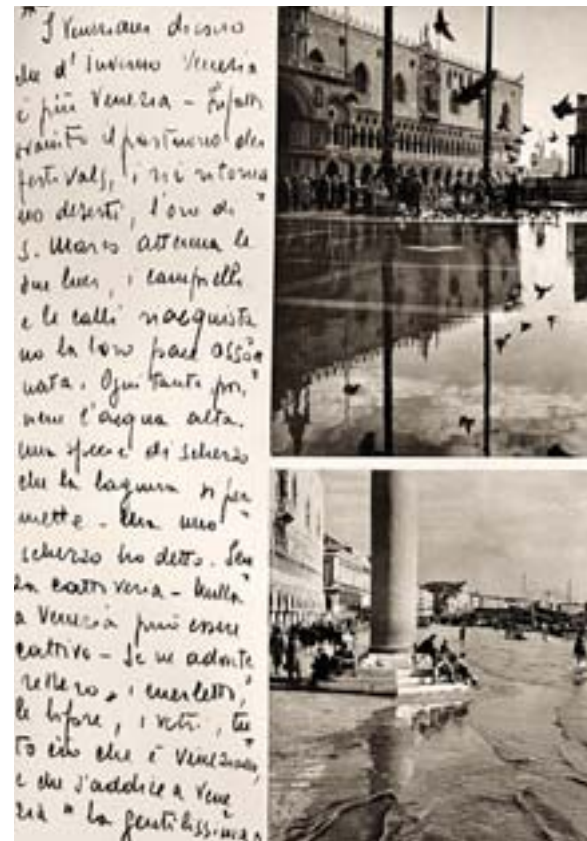 I Veneziani dicono
che d'inverno Venezia
è più Venezia - Infatti
svanito il frastuono dei
festivals, i rii ritorna
no deserti, l'oro di
S. Marco attenua le
sue luci, i campielli
e le calli riacquista
no la loro pace asson
nata. Ogni tanto poi,
viene l'acqua alta.
una specie di scherzo
che la laguna si per
mette - Ma uno
scherzo ho detto. Sen
za cattiveria - Nulla
a Venezia può essere
cattivo - Se ne adonte
rebbero, i merletti,
le bifore, i vetri, tut
to ciò che è Veneziano,
e che s'addice a Vene
zia "la gentilissima"